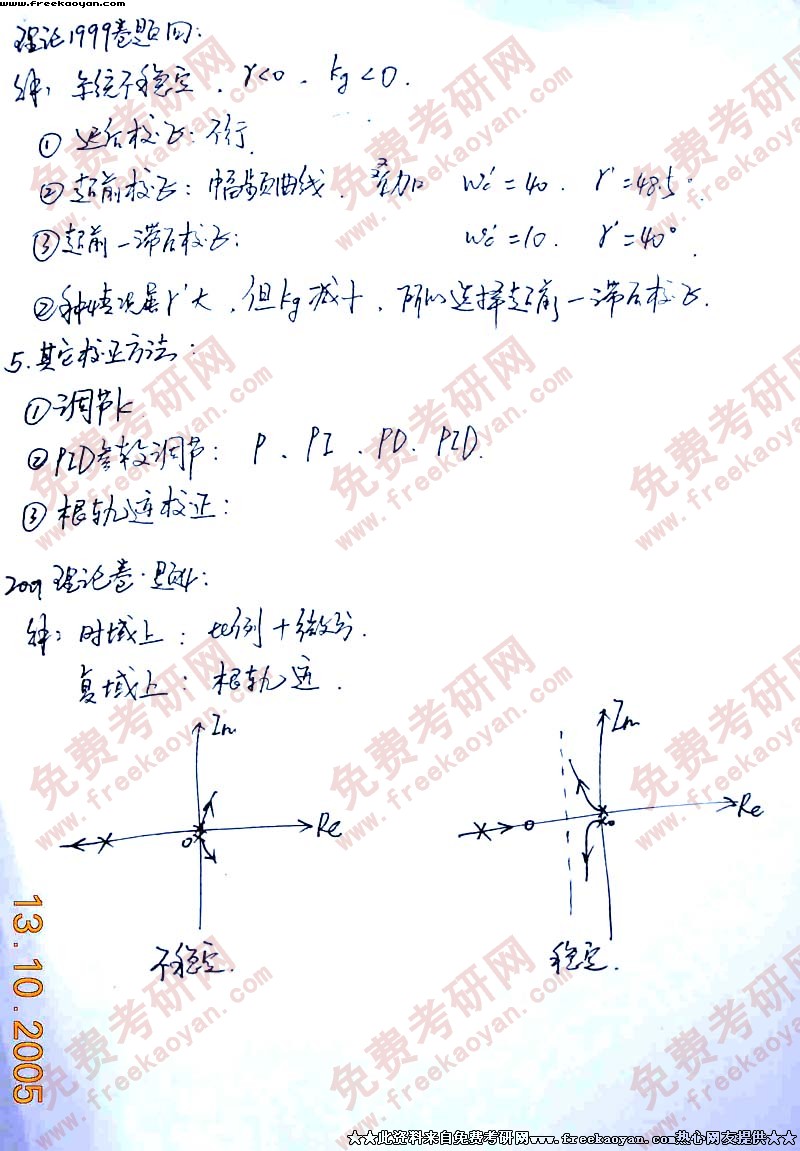 www.freekaoyan.com
理论1999卷题四:
解: 系统不稳定, γ<0, kg<0.
① 迟后校正: 不行.
② 超前校正: 幅频曲线, 叠加 Wc'=40. γ'=48.5°.
③ 超前-滞后校正: Wc'=10. γ'=40°.
②种情况虽γ'大, 但kg减小, 所以选择超前-滞后校正.
5. 其它校正方法:
① 调节K
② PID参数调节: P、PI、PD、PID.
③ 根轨迹校正:
2001理论卷·题4:
解: 时域上: 比例+微分.
复域上: 根轨迹.
Im Im
Re Re
0 0
不稳定. 稳定.
13.10.2005
免费考研网
www.freekaoyan.com
★★此资料来自免费考研网www.freekaoyan.com热心网友提供★★